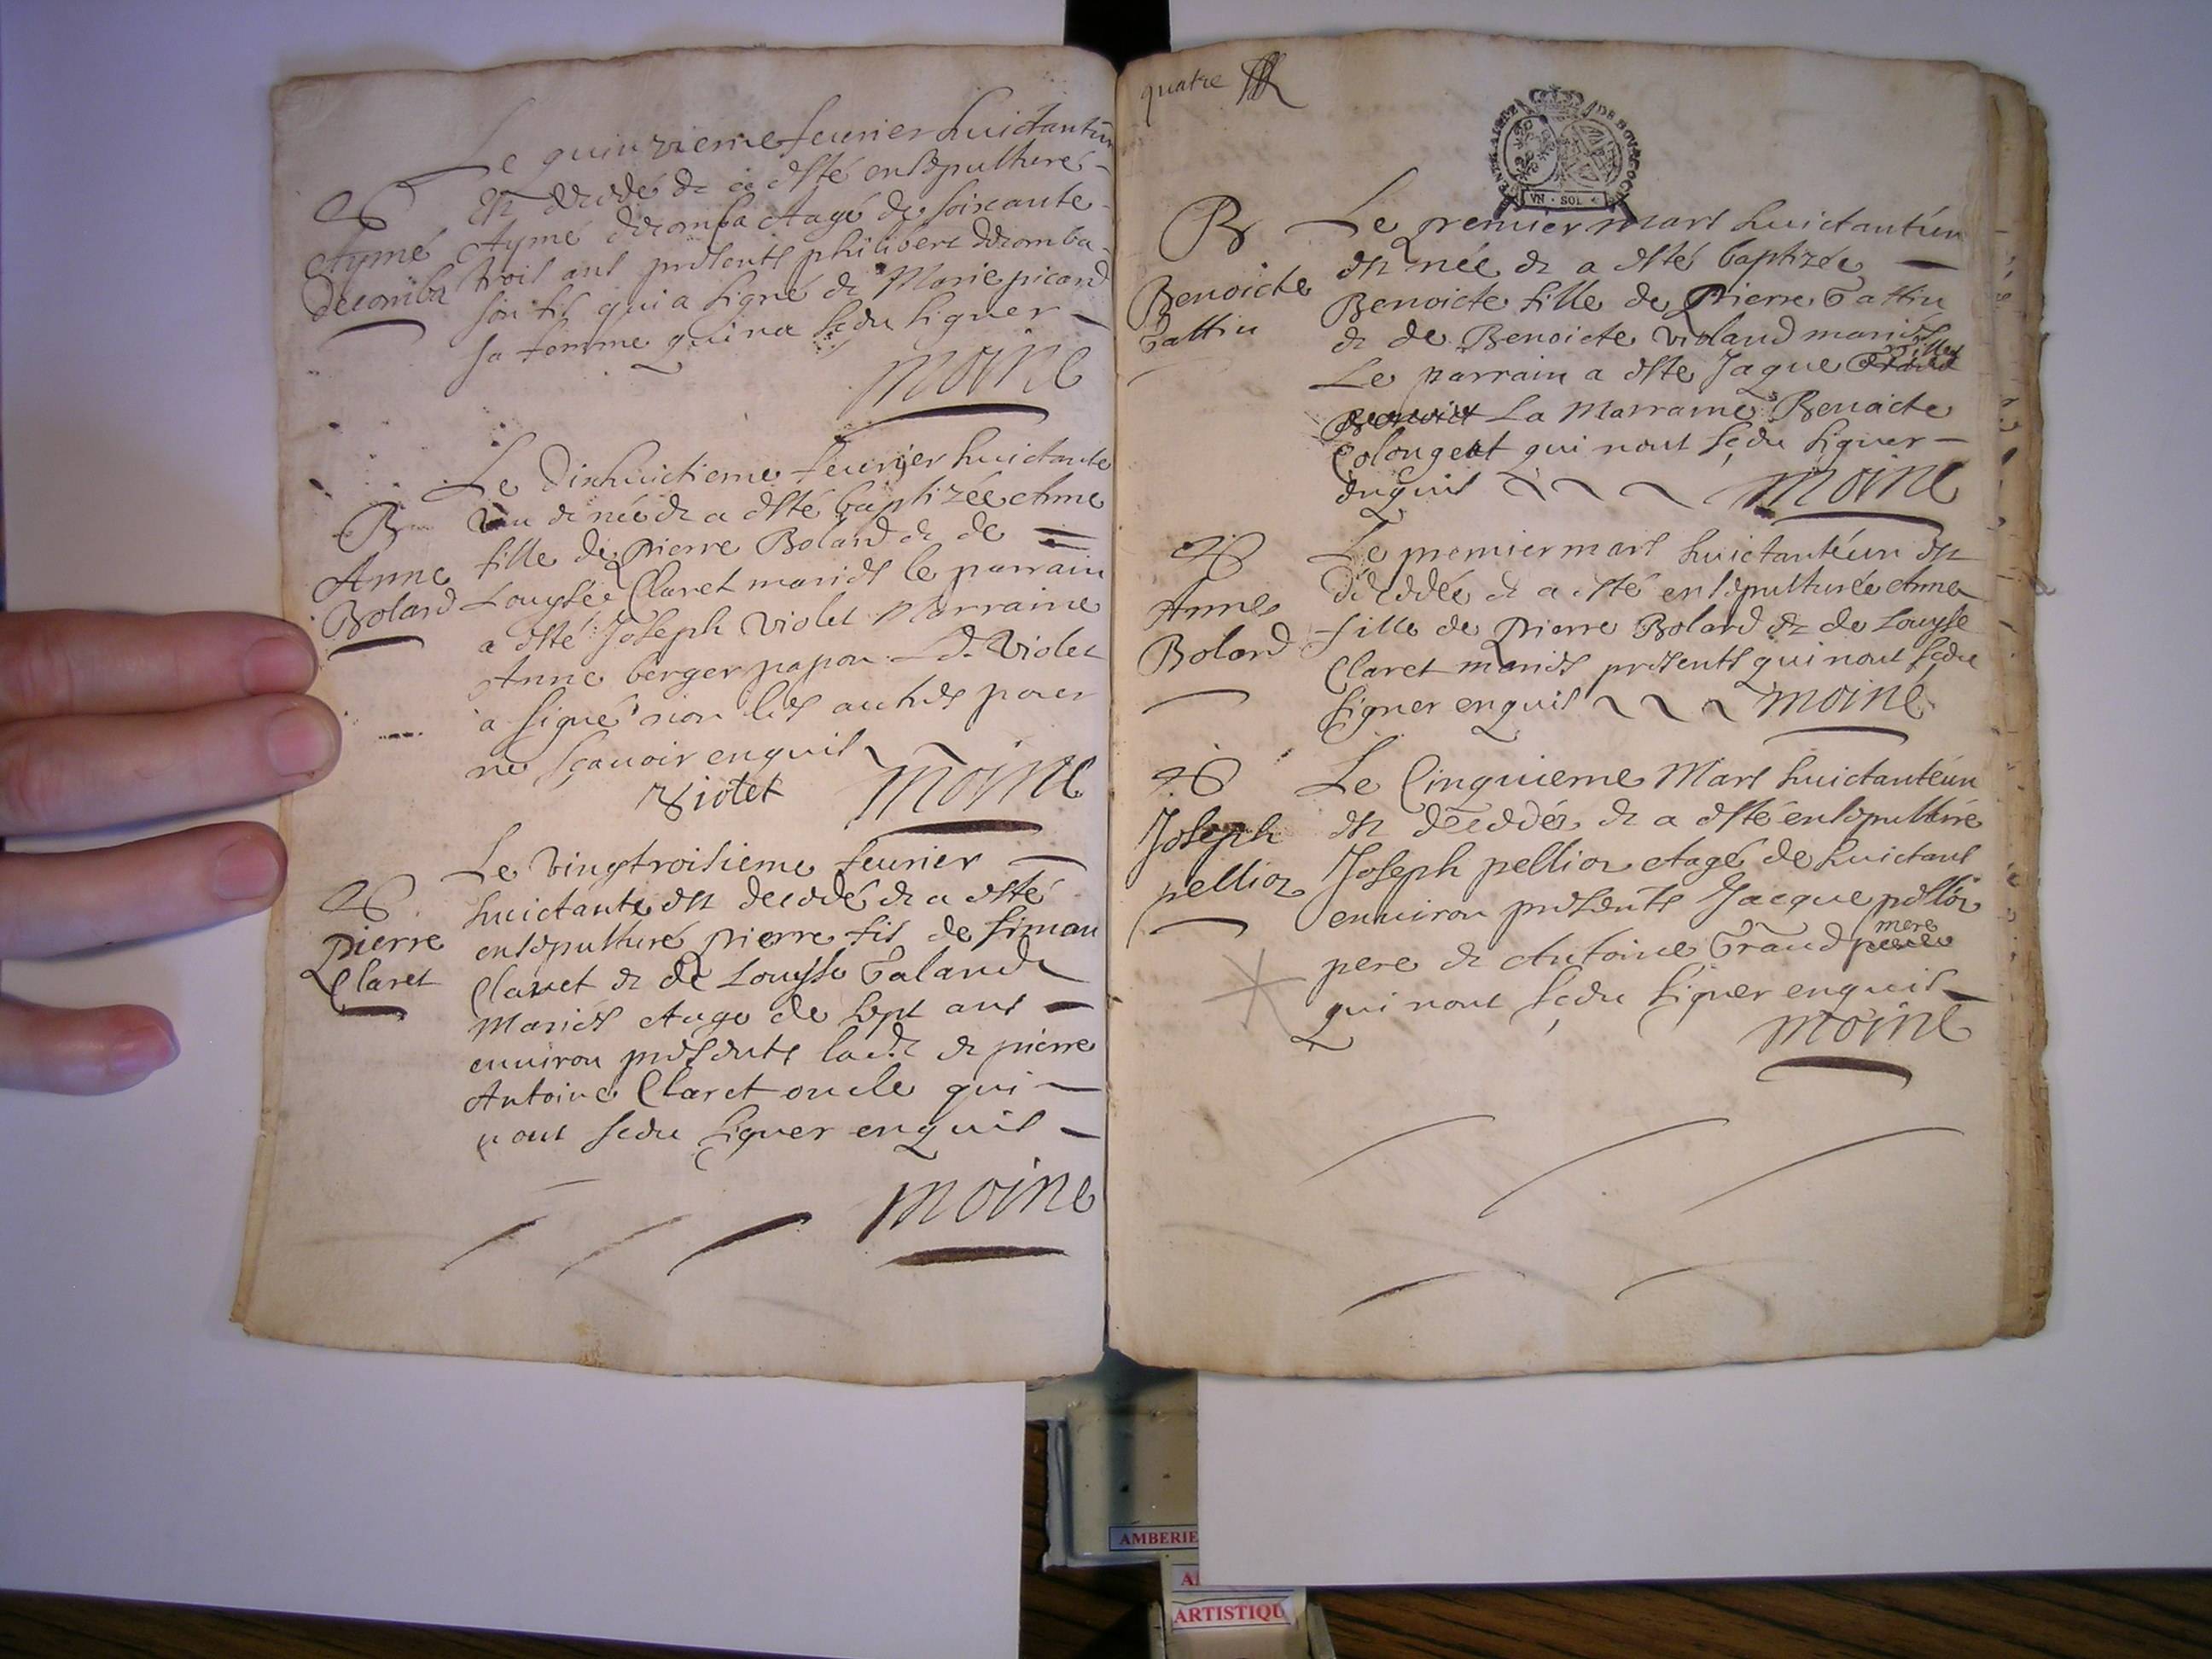 Le quinzieme feurier huictantun
est decedé & a esté ensepulturé
Aymé decomba Aagé de soixante
trois ans presents philibert decomba
son fil qui a signé & Marie picard
sa femme qui na sçeu signer
moine
Aymé
decomba
Le dixhuictieme feurier huictante
un & née & a esté baptizée Anne
fille de Pierre Bolard & de
Louyse Claret mariés le parrain
a esté Joseph Violet Marraine
Anne berger papon led. Violet
a signé non les autres pour
ne sçauoir enquis
Violet moine
B
Anne
Bolard
Le vingtroisieme feurier
huictante est decedé & a esté
ensepulturé Pierre fils de Simon
Claret & de Louyse Galande
Mariés Aage de sept ans
enuiron presents lad. & pierre
Antoine Claret oncle qui
nont sceu signer enquis
moine
Pierre
Claret
quatre
VN · SOL
B
Benoicte
Gattin
Le premier mars huictantéun
est née & a esté baptizée
Benoicte fille de Pierre Gattin
& de Benoicte Violand mariés
Le parrain a este Jaque
La Marraine Benoicte
Colonget qui nont sçeu signer
enquis moine
Anne
Bolard
Le premier mars huictantéun est
decedée & a esté ensepulturée Anne
fille de Pierre Bolard & de Louyse
Claret mariés presents qui nont sçeu
signer enquis moine
Joseph
pellior
Le Cinquieme Mars huictantéun
est decedé & a esté ensepulturé
Joseph pellior Aagé de huictans
enuiron presents Jacque pellior
pere & Antoine Grand mere
qui nont sçeu signer enquis
moine
AMBERIE
ARTISTIQU